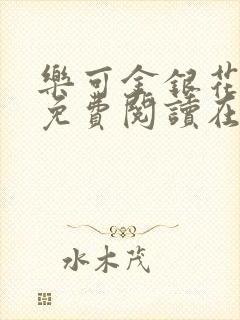 樂可金銀花
免費閱讀在
水木茂